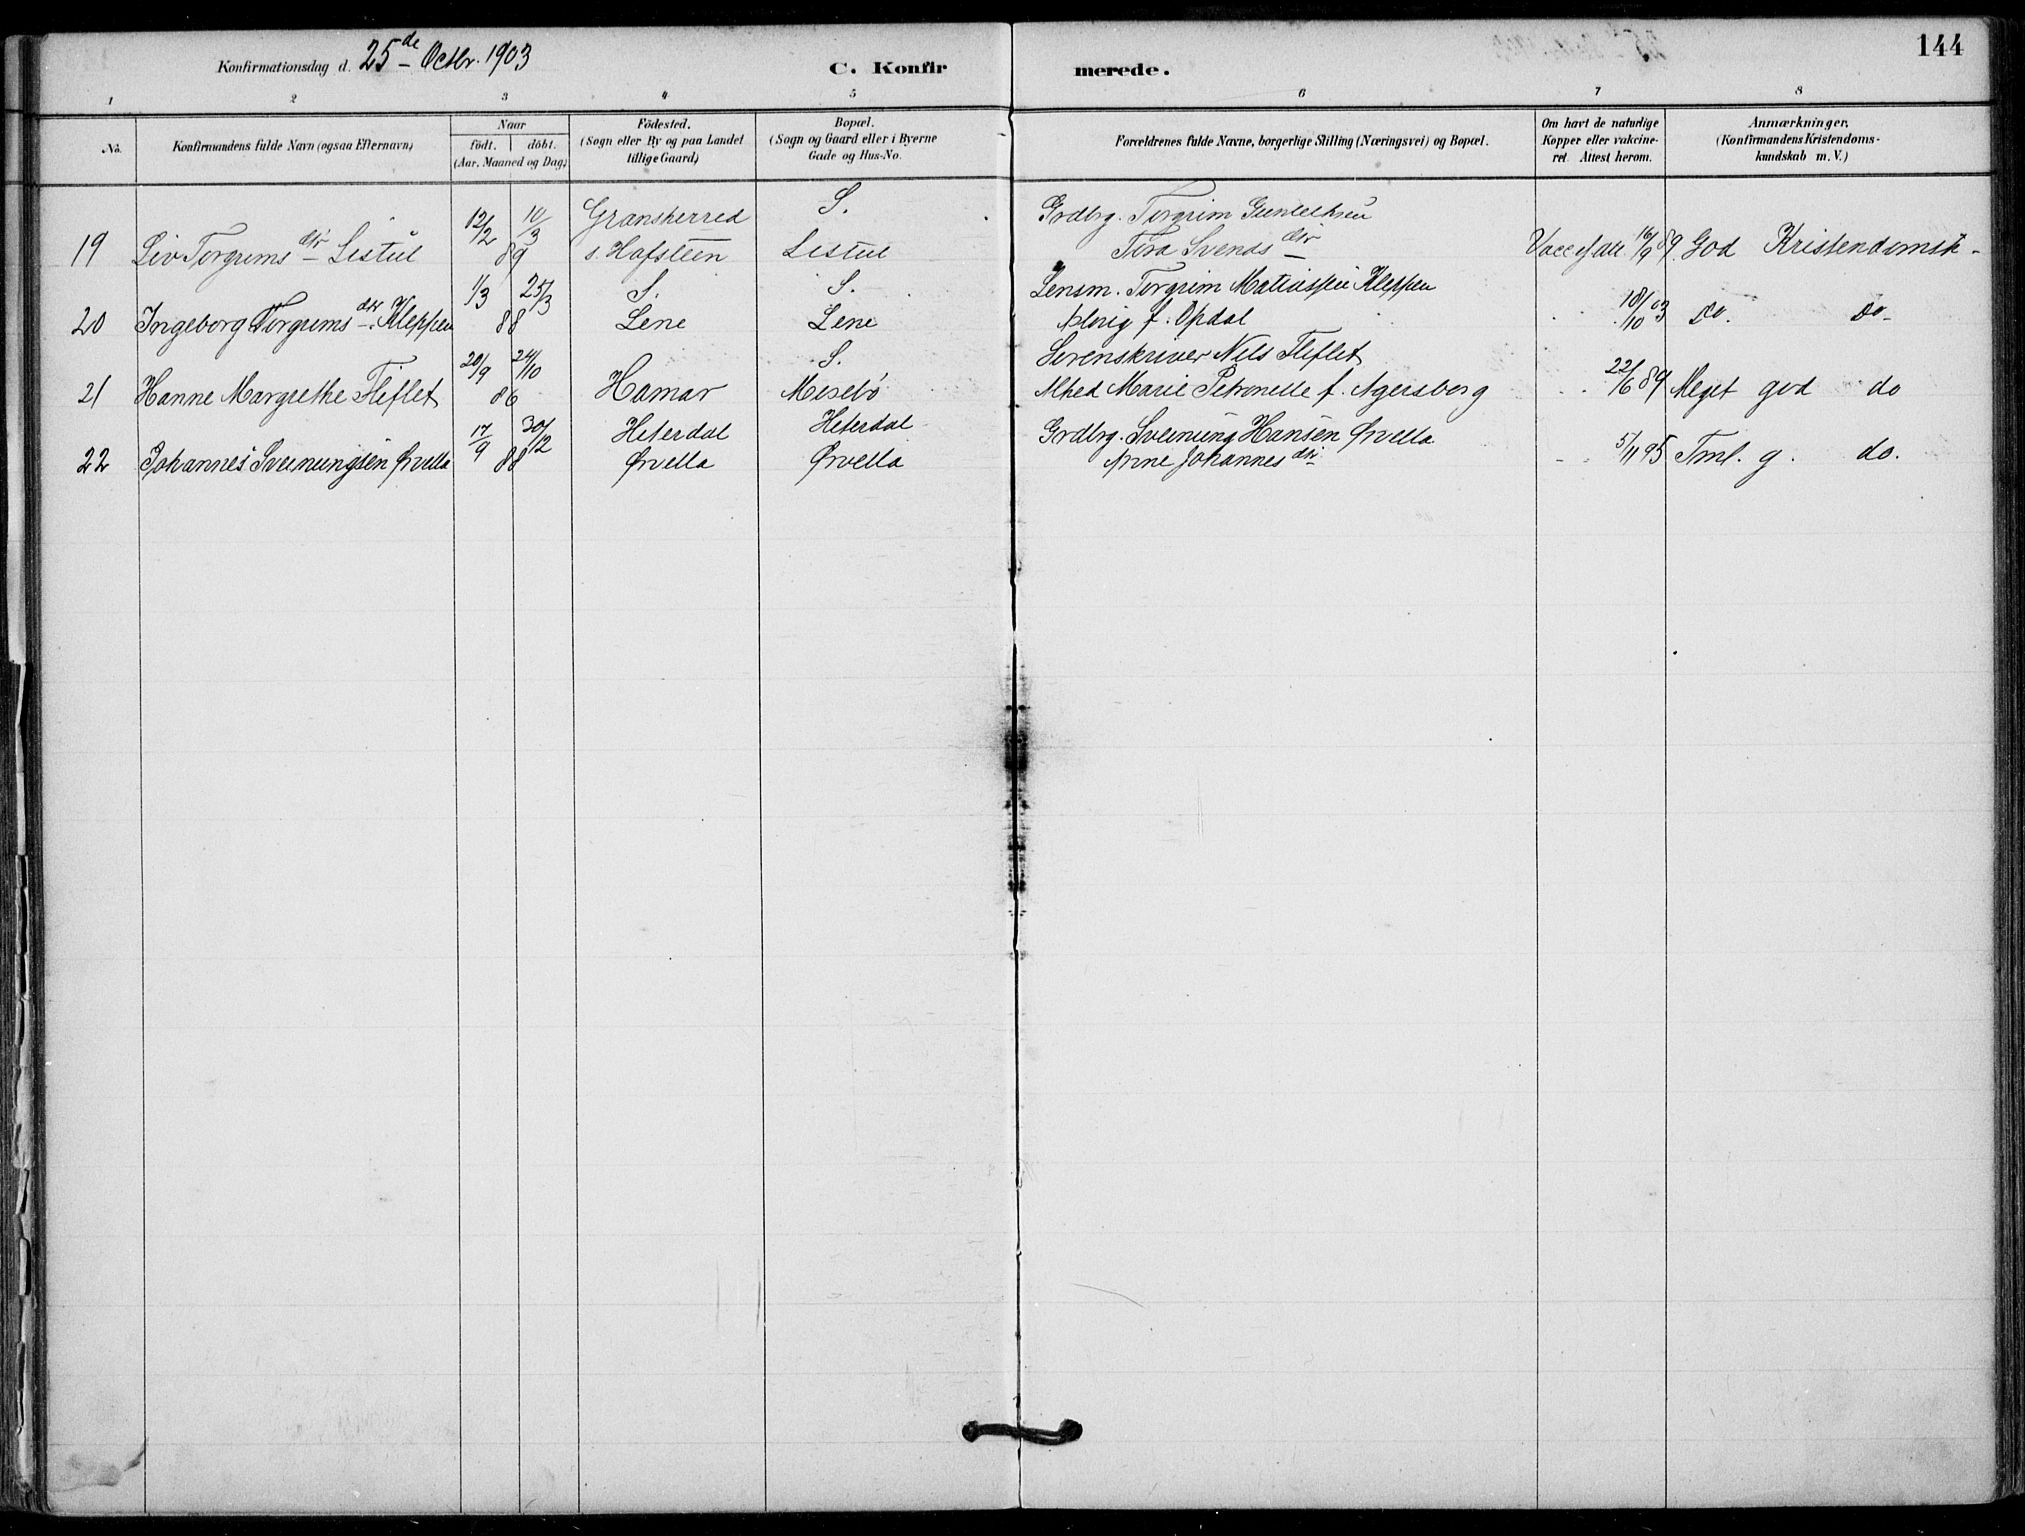 144
Konfirmationsdag d. 25de Octbr. 1903
C. Konfirmerede.
1 2 3 4 5 6 7 8
No. Konfirmandens fulde Navn (ogsaa Efternavn) Naar födt. döbt. (Aar, Maaned og Dag) Födested. (Sogn eller By og paa Landet tillige Gaard) Bopæl. (Sogn og Gaard eller i Byerne Gade og Hus-No. Forældrenes fulde Navne, borgerlige Stilling (Næringsvei) og Bopæl. Om havt de naturlige Kopper eller vakcineret. Attest herom. Anmærkninger. (Konfirmandens Kristendomskundskab m. V.)
12/2 10/3 Gransherred S. Grdbrg. Torgrim
19 Liv Torgrimsdtr Listul 89 s. Hafsteen Listul Tora Svendsdtr Vacc. ifl. att. 16/9 89. God Kristendomsk-
1/3 25/3 S. S. Lensm. Torgrim Matiassen Kleppen
20 Ingeborg Torgrimsdtr. Kleppen 88 Lene Lene Aslaug f. Opdal 18/10 03 Do. Do-
20/9 24/10 S. Sorenskriver Nils Fliflet
21 Hanne Margrethe Fliflet 86 Hamar Mosebø Alhed Marie Petronelle f. Agersborg 22/6 89 Meget god do
17/9 30/12 Heterdal Heterdal Grdbrg. Sveinung Hansen Ørvella
22 Johannes Sveinungsen Ørvella 88 Ørvella Ørvella Anne Johannesdtr - - 5/11 95 Tml. g. do.